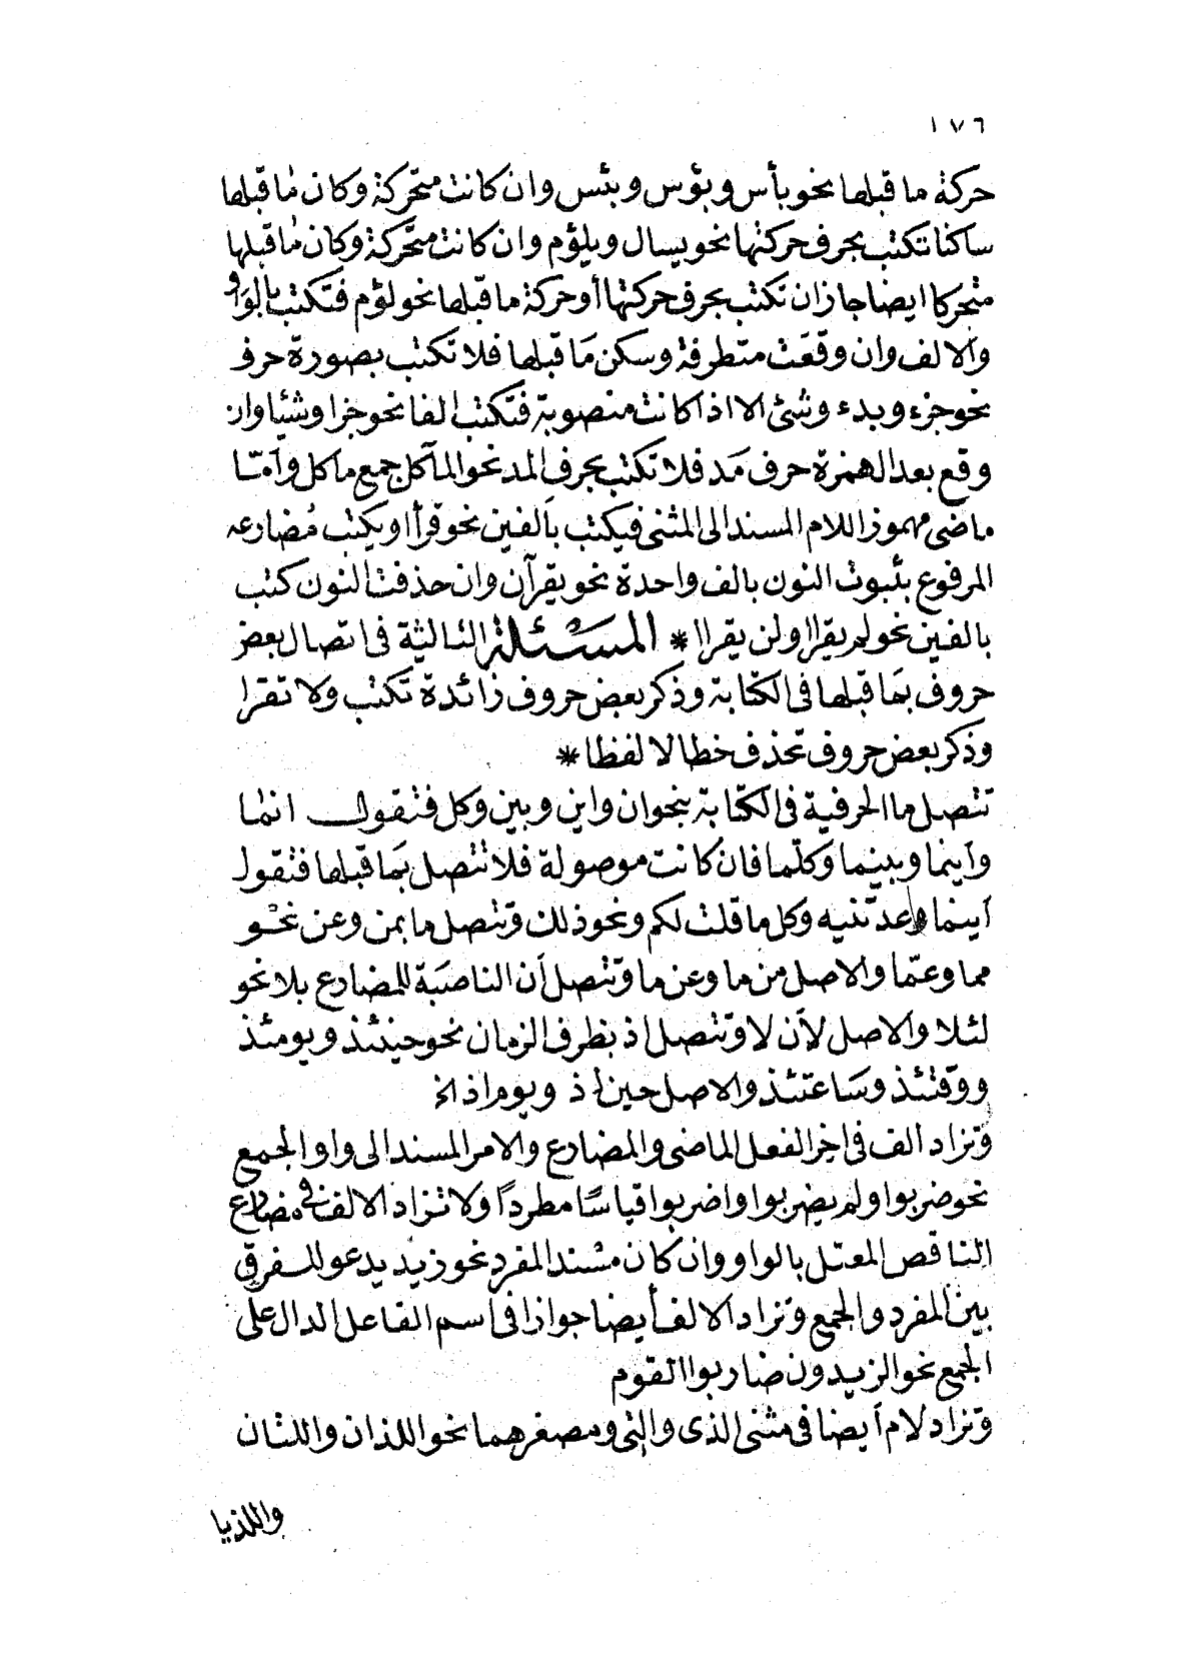 ١٧٦
حركة ما قبلها نحو بأس وبؤس وبئس وان كانت متحركة وكان ما قبلها
ساكنا تكتب بحرف حركتها نحو يسال ويلؤم وان كانت متحركة وكان ما قبلها
متحركا ايضا جاز ان تكتب بحرف حركتها أو حركة ما قبلها نحو لؤم فتكتب بالواو
والالف وان وقعت متطرفة وسكن ما قبلها فلا تكتب بصورة حرف
نحو جزء وبدء وشئ الا اذا كانت منصوبة فتكتب الفا نحو جزا وشئيا وان
وقع بعد الهمزة حرف مد فلا تكتب بحرف المد نحو المآكل جمع مأكل وأمّا
ماضى مهموز اللام المسند الى المثنى فيكتب بألفين نحو قرأا ويكتب مُضارعه
المرفوع بثبوت النون بالف واحدة نحو يقرآن وان حذفت النون كتب
بالفين نحو لم يقراا ولن يقراا * المسئلة الثالثة فى اتصال بعض
حروف بما قبلها فى الكتابة وذكر بعض حروف زائدة تكتب ولا تقرا
وذكر بعض حروف تحذف خطا لا لفظا *
تتصل ما الحرفية فى الكتابة بنحو ان واين وبين وكل فتقول انما
وأينما وبينما وكلّما فان كانت موصولة فلا تتصل بما قبلها فتقول
أينما وعدتنيه وكل ما قلت لكم ونحو ذلك وتتصل ما بمن وعن نحو
مما وعمّا والاصل من ما وعن ما وتتصل أن الناصبة للمضارع بلا نحو
لئلا والاصل لأن لا وتتصل اذ بظرف الزمان نحو حينئذ ويومئذ
ووقتئذ وساعتئذ والاصل حين اذ ويوم اذ الخ
وتزاد الف فى اخر الفعل الماضى والمضارع والامر المسند الى واو الجمع
نحو ضربوا ولم يضربوا واضربوا قياسًا مطردًا ولا تزاد الالف فى مضارع
الناقص المعتل بالواو وان كان مسند المفرد نحو زيد يدعو للفرق
بين المفرد والجمع وتزاد الالف أيضا جوازا فى اسم الفاعل الدال على
الجمع نحو الزيدون ضاربوا القوم
وتزاد لام أيضا فى مثنى الذى والتى ومصغرهما نحو اللذان واللتان
واللذيا